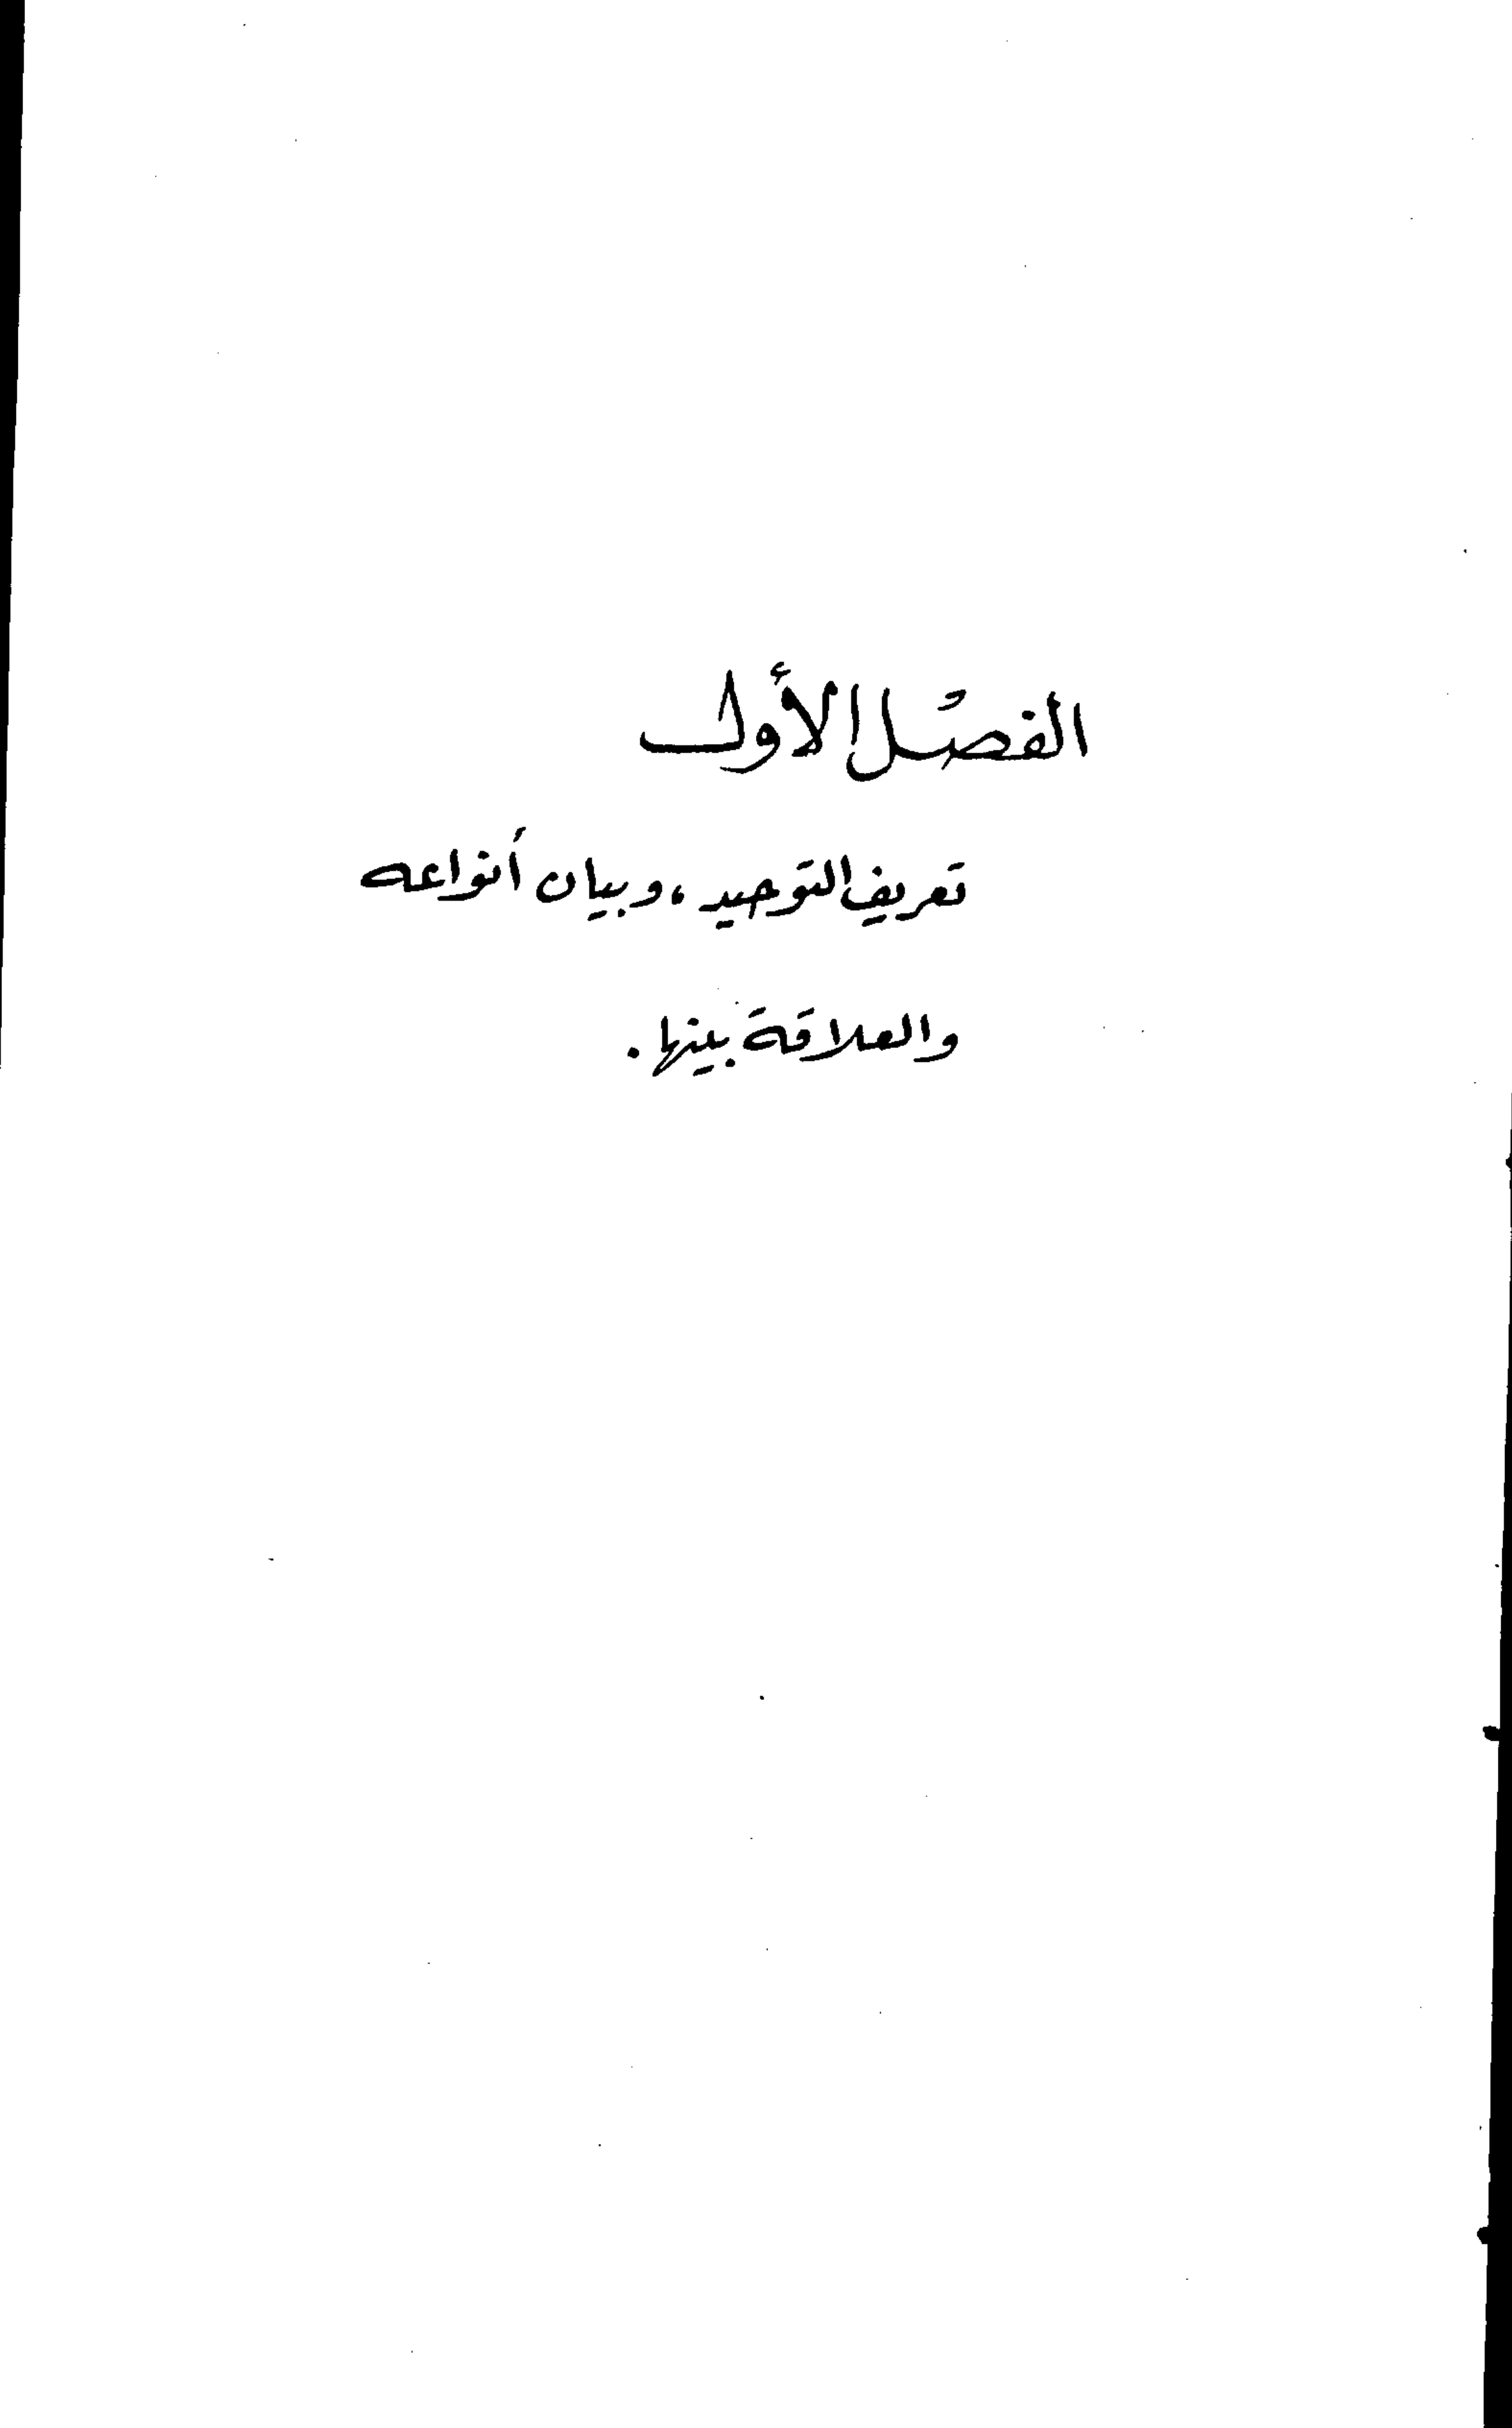 الفصل الأول
تعريف التوحيد، وبيان أنواعه
والعلاقة بينها.